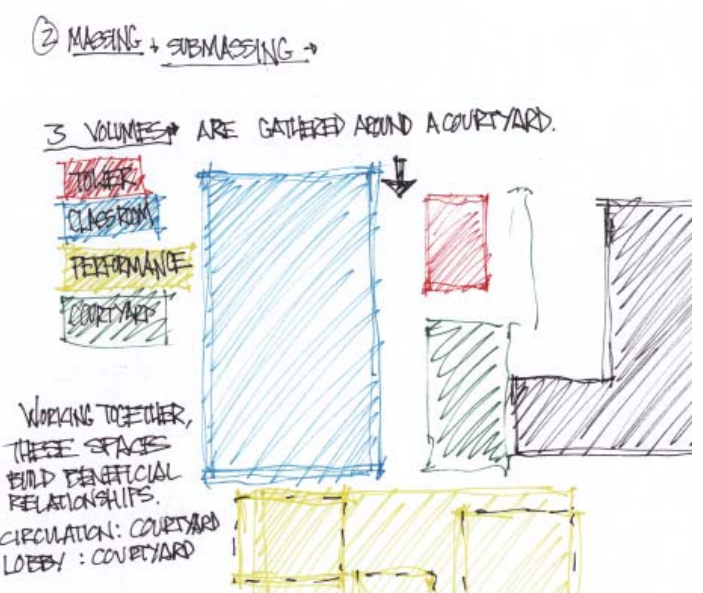 ② MASSING + SUBMASSING →
3 VOLUMES → ARE GATHERED AROUND A COURTYARD.
TOWER
CLASSROOM
PERFORMANCE
COURTYARD
WORKING TOGETHER,
THESE SPACES
BUILD BENEFICIAL
RELATIONSHIPS.
CIRCULATION: COURTYARD
LOBBY : COURTYARD